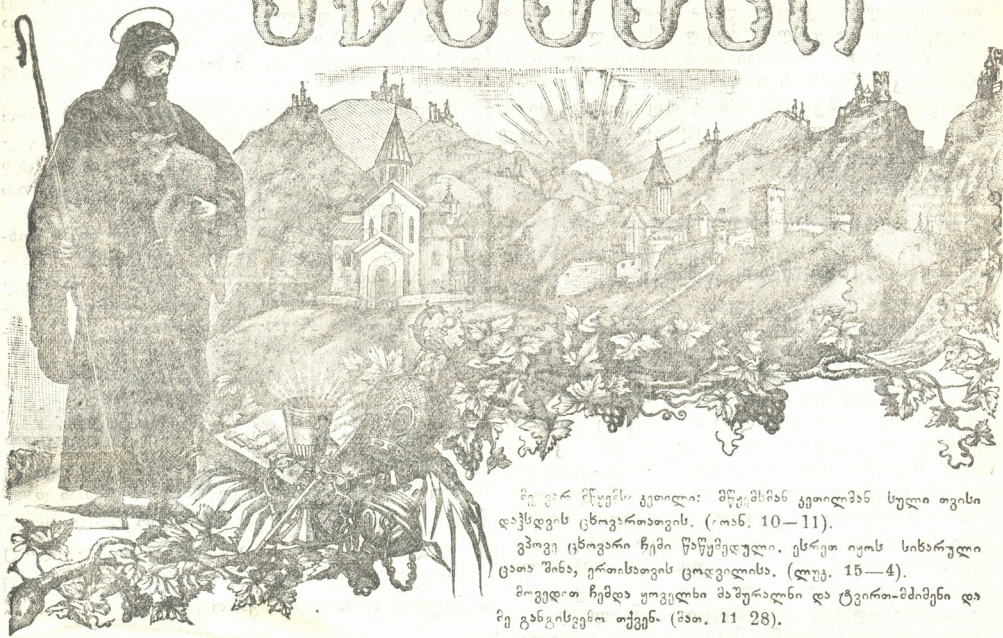 მე ვარ მწყემსი კეთილი: მწყემსმან კეთილმან სული თვისი
დაჰსდვის ცხოვართათვის. (იოან. 10—11).
ვპოვე ცხოვარი ჩემი წაწყმედული. ესრეთ იყოს სიხარული
ცათა შინა, ერთისათვის ცოდვილისა. (ლუკ. 15—4).
მოვედით ჩემდა ყოველნი მაშურალნი და ტვირთ-მძიმენი და
მე განგისვენო თქვენ. (მათ. 11 28).